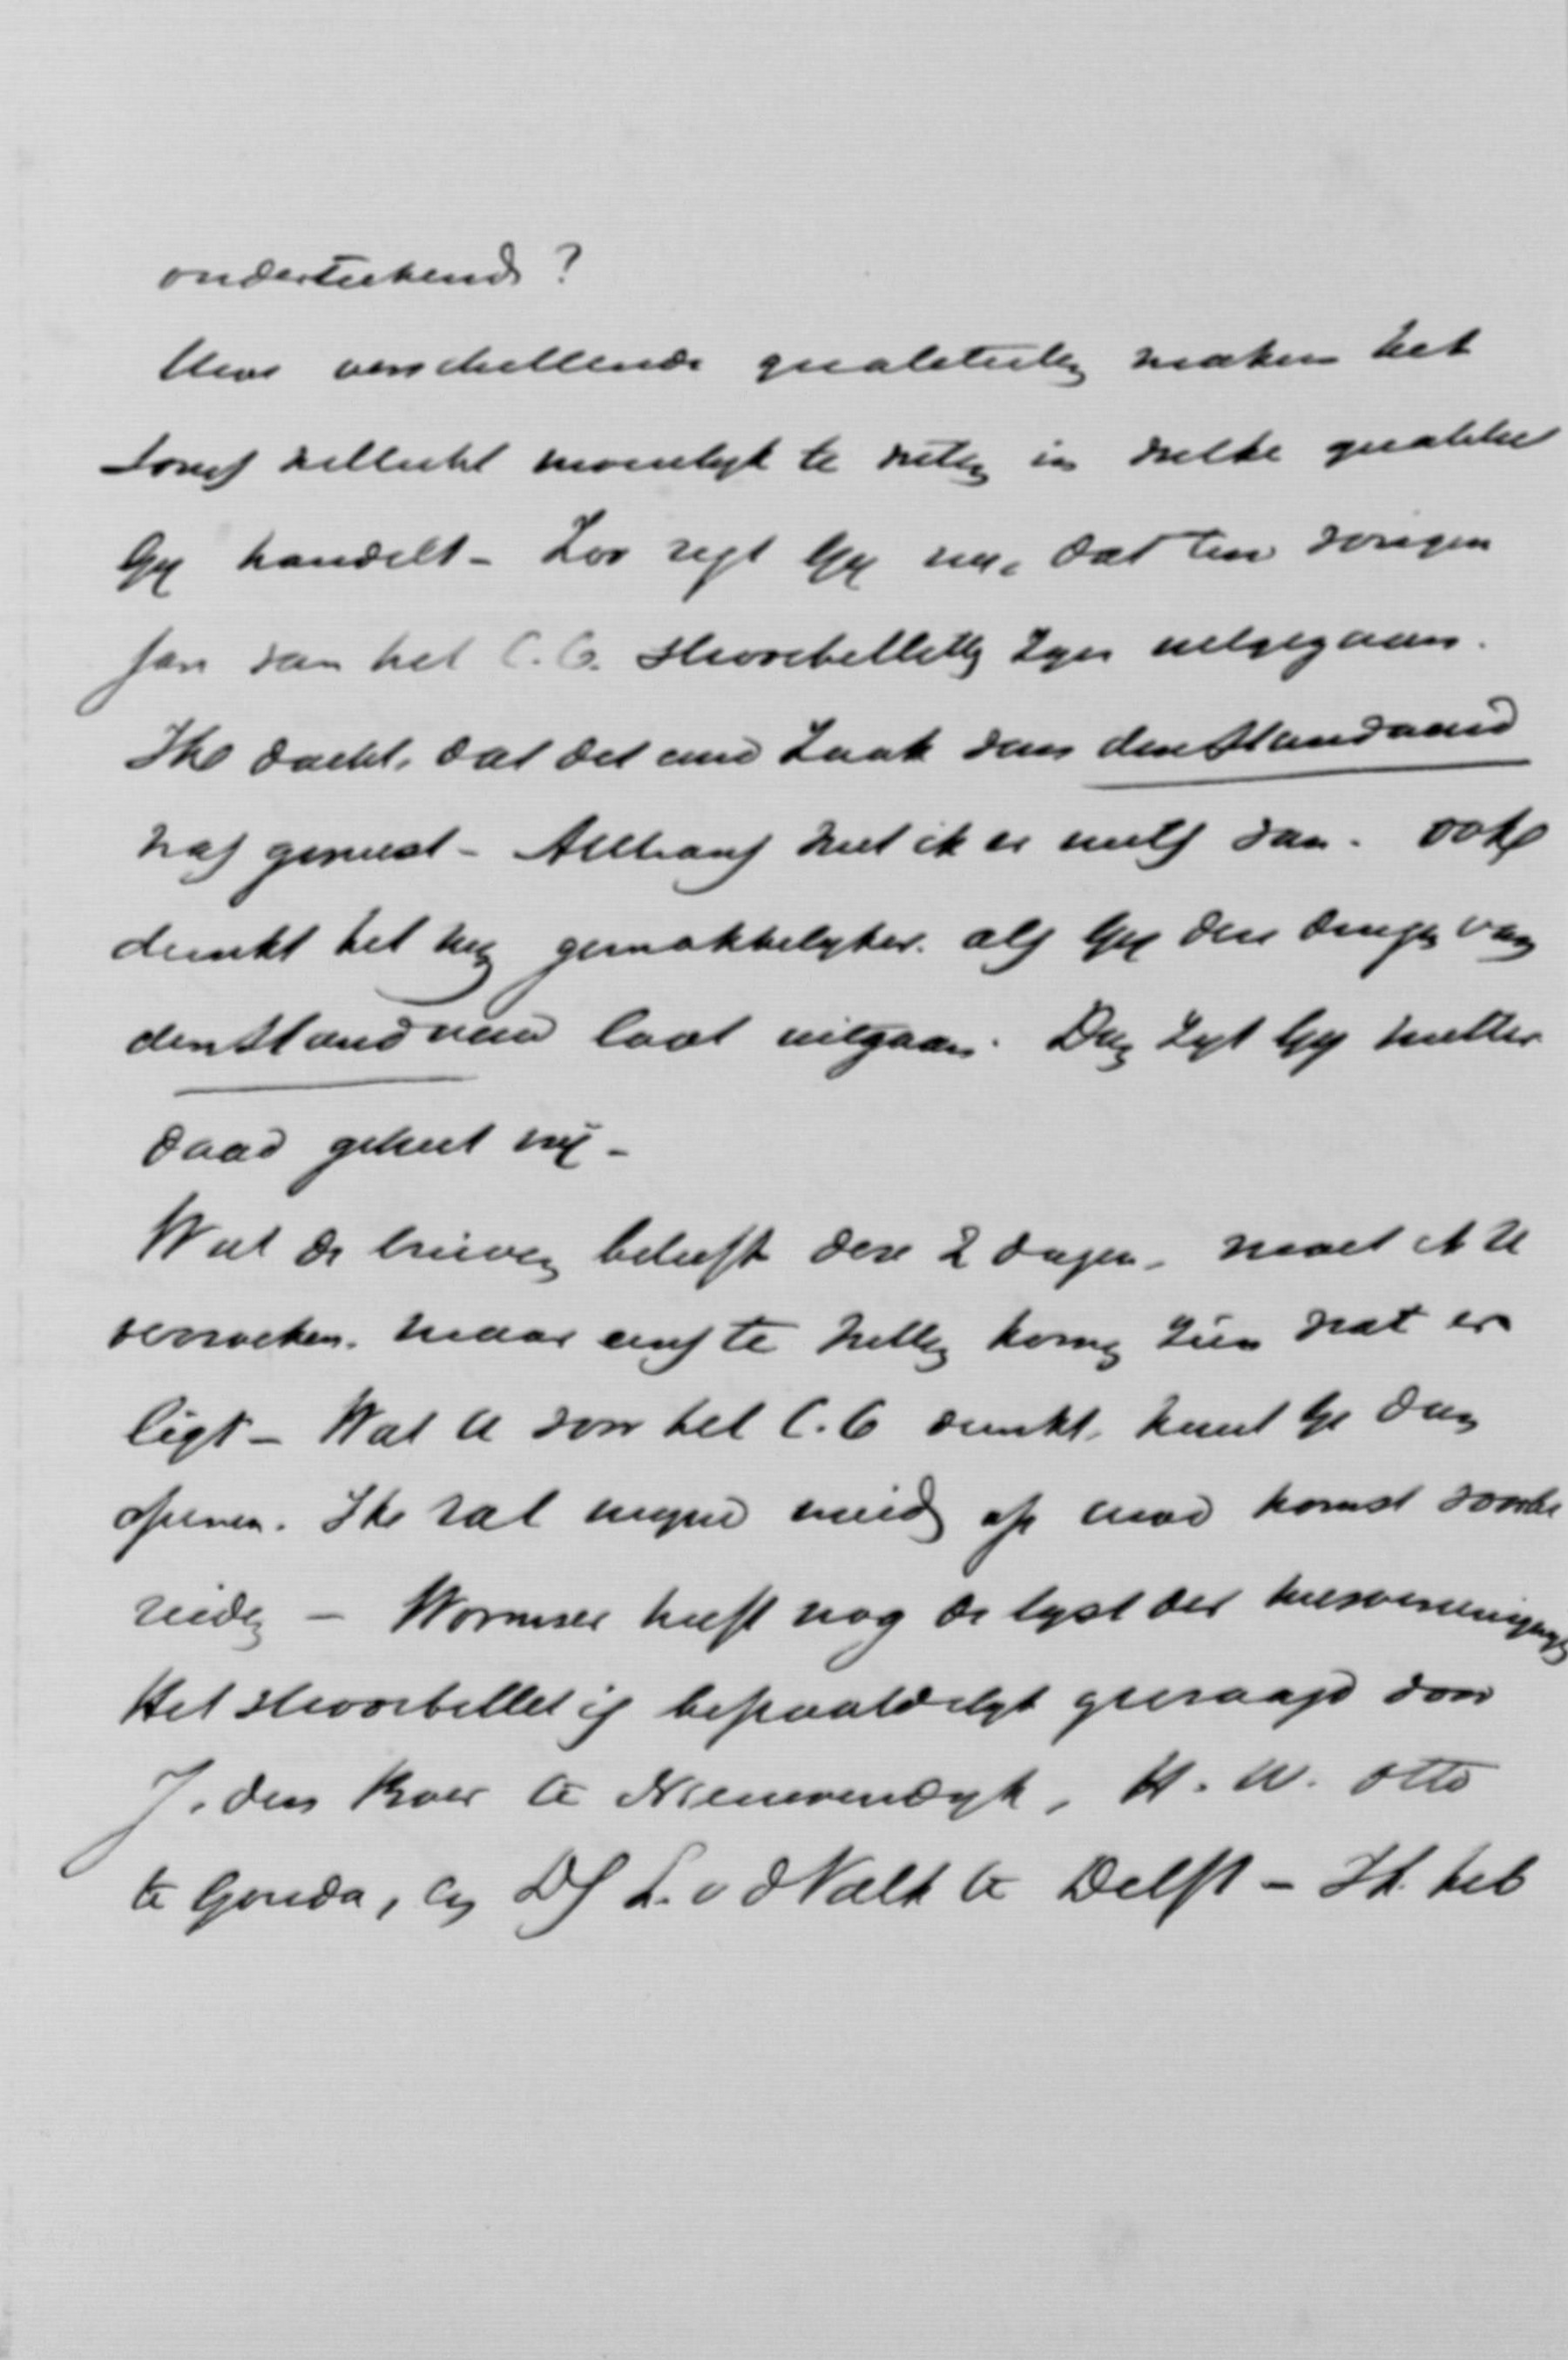 onderteekend?
Uwe verschillende qualiteiten maken het
soms wellicht moeielyk te weten in welke qualiteit
Gy handelt - Zoo zegt Gy nu, dat ten vorigen
jare van het C.C. strooibilletten zyn uitgegaan.
Ik dacht, dat dit eene zaak van den Standaard
was geweest - Althans weet ik er niets van. Ook
dunkt het my gemakkelyker als Gy deze dingen van
den Standaard laat uitgaan. Dan zyt Gy metter
daad geheel vry -
Wat de brieven betreft deze 2 dagen, moet ik U
verzoeken, maar eens te willen komen zien wat er
ligt - Wat U voor het C.C dunkt, kunt Gy dan
openen. Ik zal mynen meid op uwe komst voorbe
reiden - Wormser heeft nog de lyst der kiesvereenigingen
Het strooibillet is bepaaldelyk gevraagd door
J. den Boer te Nieuwendyk, H. W. Otto
te Gouda, en Ds L. v d Valk te Delft - Ik heb